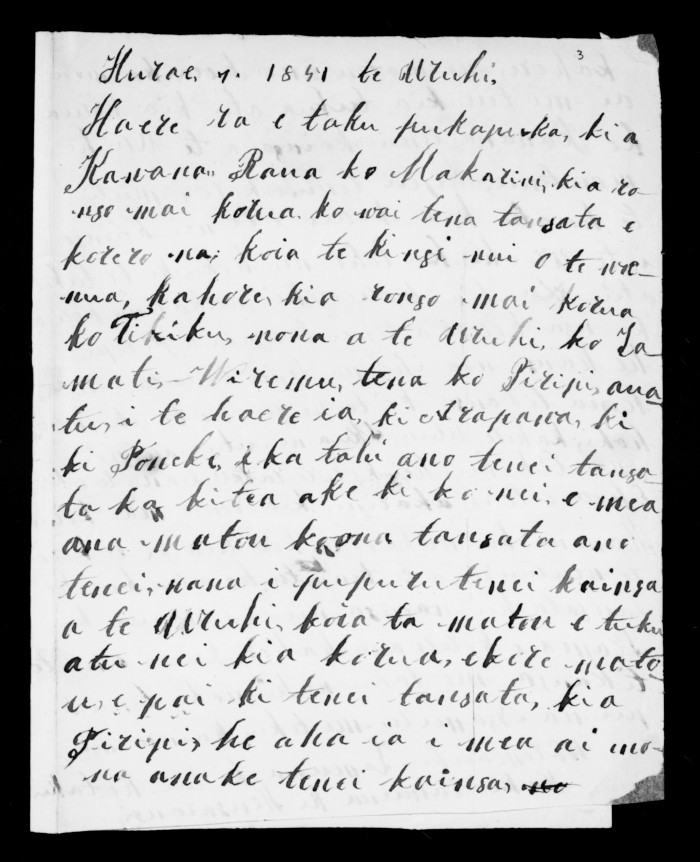 3
Hurae, 7. 1851 te Uruhi,
Haere ra e taku pukapuka, ki a
Kawana, Raua ko Makarini, kia ro-
ngo mai korua ko wai tena tangata e
korero na, koia te kingi nui o te we-
nua, kahore, kia rongo mai korua
ko Tikiku, nona a te Uruhi, ko Ta
mati - Wiremu, tena ko Piripi, ana
tu, i te haere ia, ki Arapawa, ki
ki Poneke, ka tahi ano tenei tanga-
ta ka kitea ake ki ko nei, e mea
ana matou koona tangata ano
tenei, nana i pupuru tenei kainga
a te Uruhi, koia ta matou e tuku
atu nei kia korua, ekore mato
u, e pai ki tenei tangata, kia
Piripi, he aha ia i mea ai mo-
na anake tenei kainga,